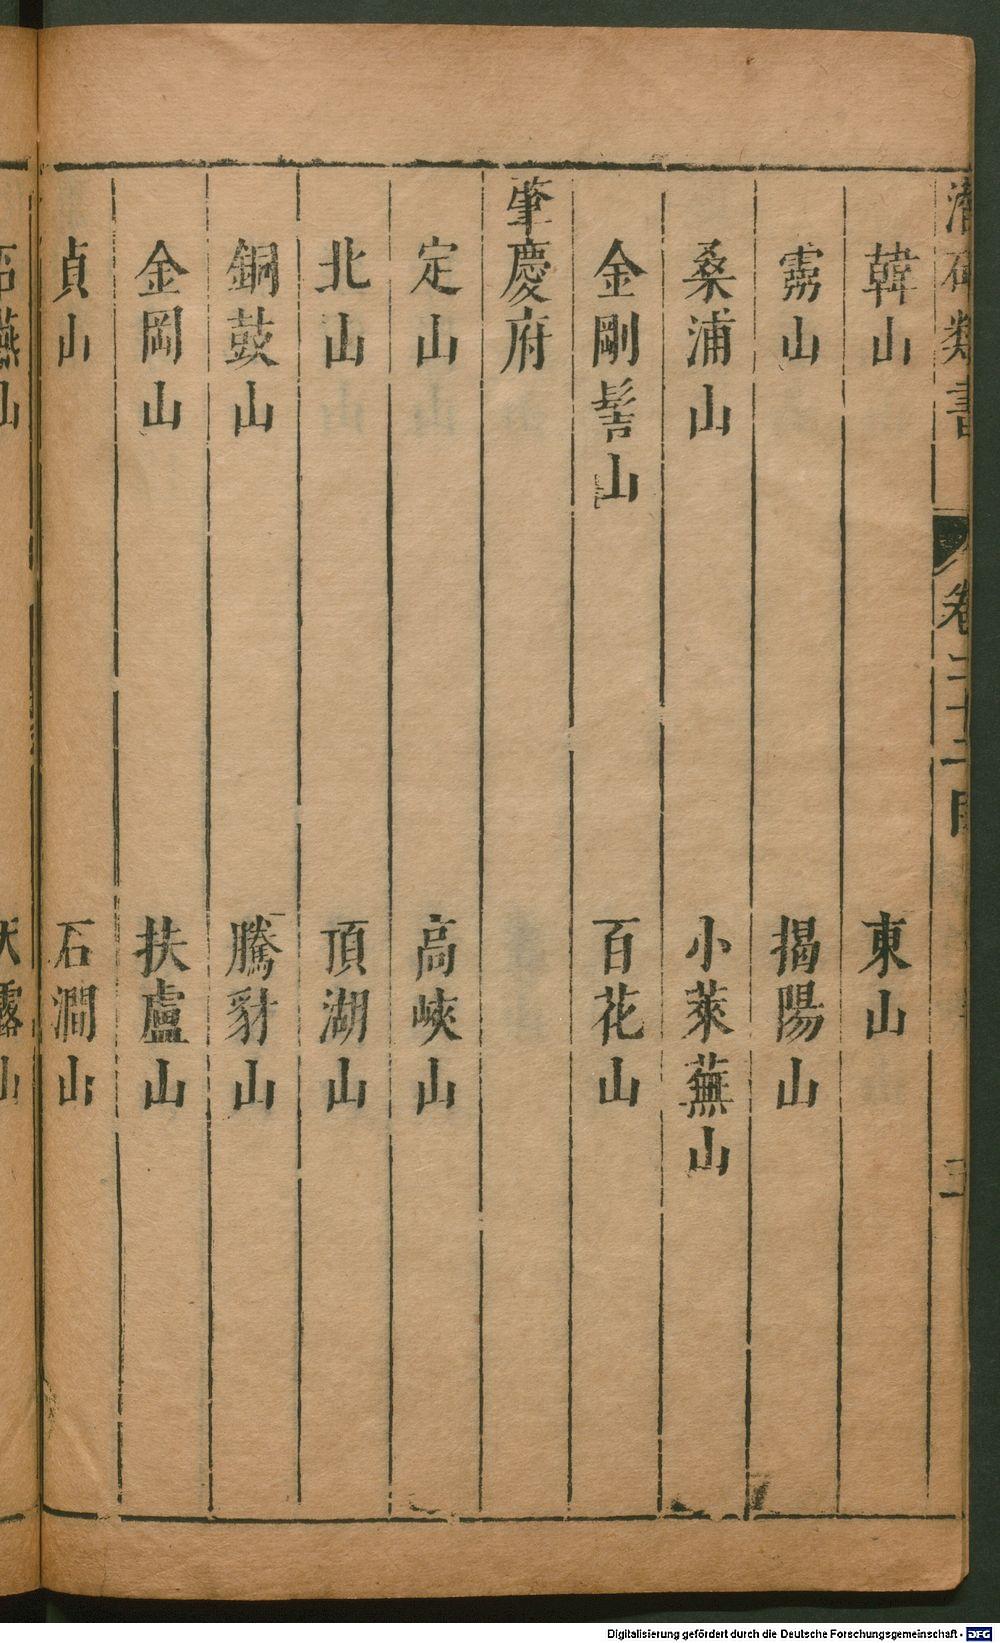 潛確類書 卷二十二目
韓山 東山
揭陽山
桑浦山 小萊蕪山
金剛髻山 百花山
肇慶府
定山 高峽山
北山 頂湖山
銅鼓山 騰豺山
金岡山 扶盧山
貞山 石澗山
石燕山 天露山
Digitalisierung gefördert durch die Deutsche Forschungsgemeinschaft - DFG